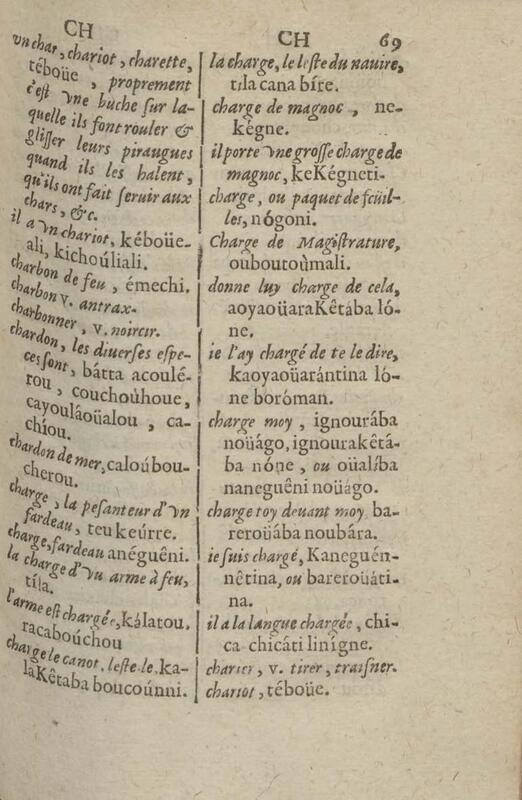 CH
vn char, chariot, charette,
téboüe, proprement
c'est vne buche sur la-
quelle ils font rouler &
glisser leurs piraugues
quand ils les halent,
qu'ils ont fait seruir aux
chars, &c.
il a vn chariot, kéboüe-
ali, kichoúliali.
charbon de feu, émechi.
charbon v. antrax.
charbonner, v. noircir.
chardon, les diuerses espe-
ces sont, bátta acoulé-
rou, couchoúhoue,
cayouláoüalou, ca-
chíou.
chardon de mer, caloúbou-
cherou.
charge, la pesanteur d'vn
fardeau, teukeúrre.
charge, fardeau anéguêni.
la charge d'vn arme à feu,
tíla.
l'arme est chargé, kálatou,
racaboúchou
charge le canot, leste le, ka-
laKêtaba boucoúnni.
CH 69
la charge, le leste du nauire,
tıla cana bíre.
charge de magnoc, ne-
kégne.
il porte vne grosse charge de
magnoc, keKégneti-
charge, ou paquet de feüil-
les, nógoni.
Charge de Magistrature,
ouboutoùmali.
donne luy charge de cela,
aoyaoüaraKêtába ló-
ne.
ie l'ay chargé de te le dire,
kaoyaoüarántina ló-
ne boróman.
charge moy, ignourába
noüágo, ignourakêtá-
ba nóne, ou oüalíba
naneguêni noüago.
charge toy deuant moy ba-
reroüába noubára.
ie suis chargé, Kaneguén-
nêtina, ou bareroüáti-
na.
il a la langue chargée, chi-
ca chicáti linígne.
charier, v. tirer, traisner.
chariot, téboüe.